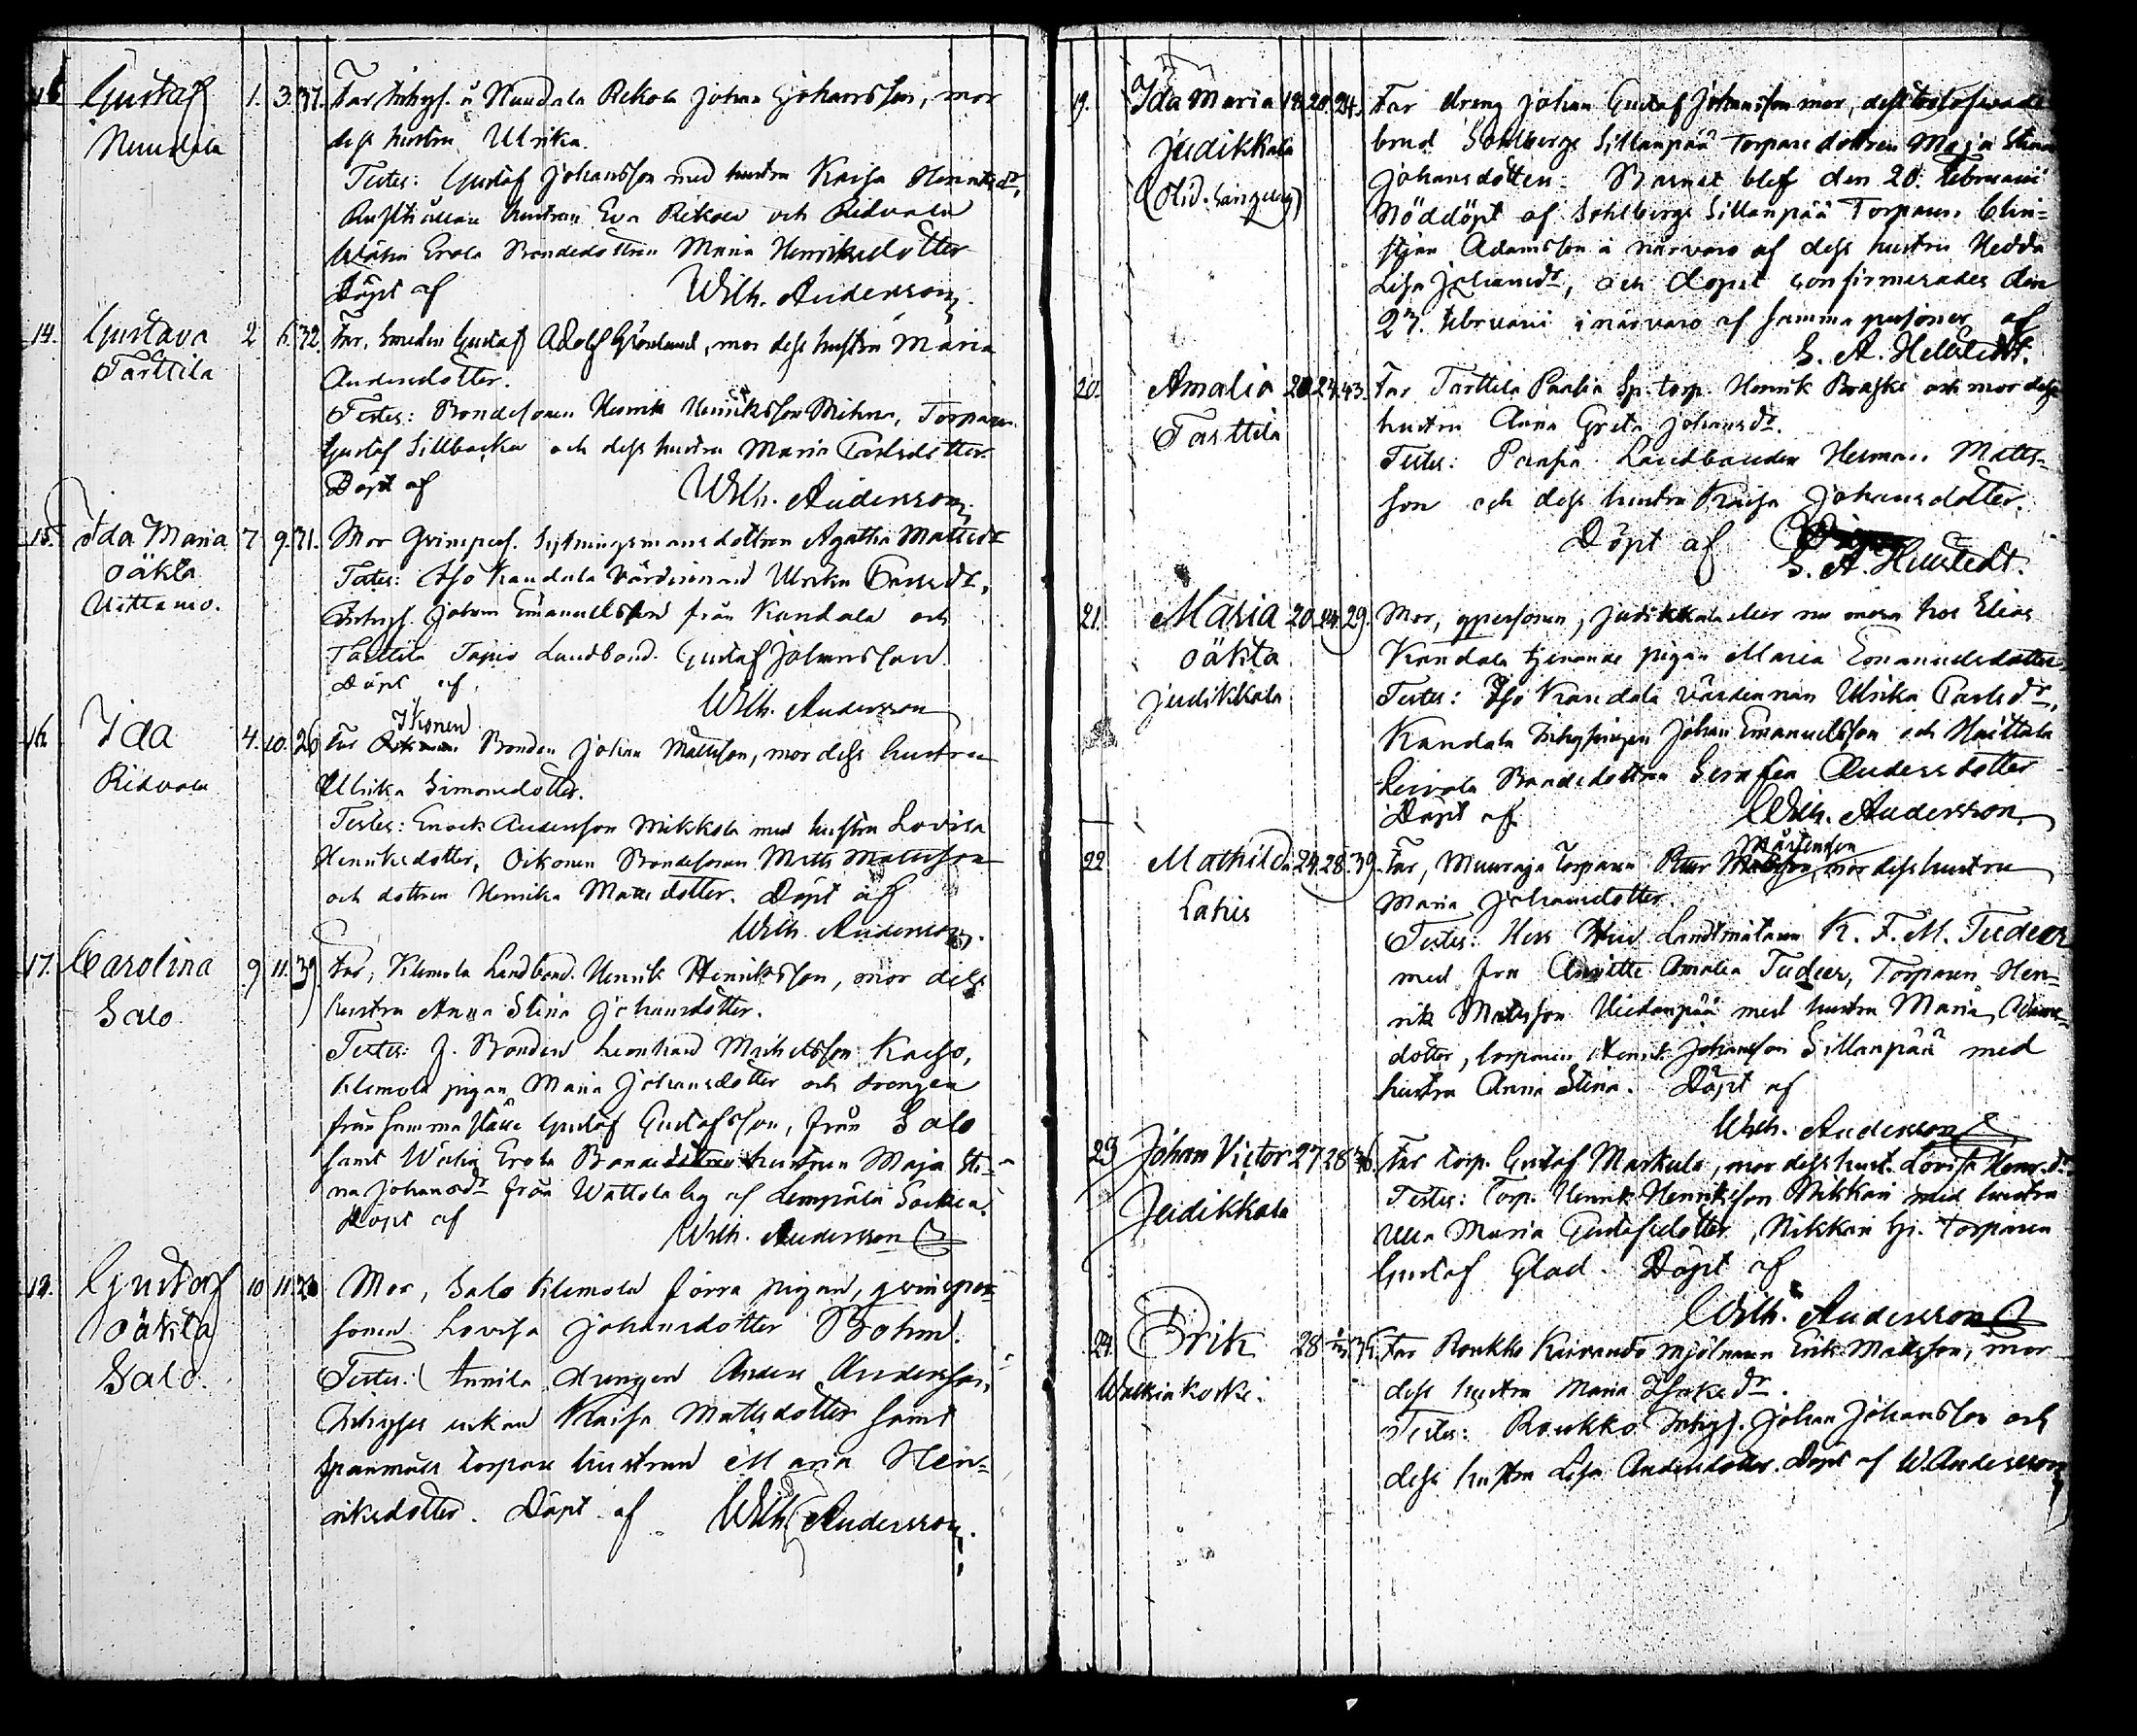 Gustaf 1. 3. 37. Far Inhys. å Nuudala Rekola Johan Johansson, mor
Nuudala dess hustru Ulrika.
Testes: Gustaf Johansson med hustru Kaisa Henriksdr,
hustrun Eva Rekola och Ridvala
Erola Bondedottren Maria Henriksdotter
Döpt af Wilh. Andersson
14. Gustava 2 6. 32. Far, Smeden Gustaf Adolf Grönlund, mor dess hustru Maria
Tarttila Andersdotter.
Testes: Bondesonen Henrik Henriksson, Torparen
Gustaf Sillbacka och dess hustru Maria Carlsdotter.
Döpt af Wilh. Andersson
15. Ida Maria 7 9. 21. Mor Qvinspers. Sytningsmansdottren Agatha Mattsdr
oäkta Testes: Iso Kandala Värdinnan Ulrika Carlsdr,
Uittamo. Inhys. Johan Emanuelsson från Kandala och
Tarttila Landbond. Gustaf Johansson
Döpt af
Wilh. Andersson
16. Ida 4. 10. 26. Far Ikonen Bonden Johan Mattsson, mor dess hustru
Ridvala Ulrika Simonsdotter.
Testes: Enock Andersson Mikkola med hustru Lovisa
Henriksdotter, Oikonen Bondesonen Matts Mattsson
och dottren Henrika Mattsdotter. Döpt af
Wilh. Andersson.
17. Carolina 9 11. 39. Far, Klemola Landbond. Henrik Henriksson, mor dess
Salo hustru Anna Stina Johansdotter.
Testes: f. Bonden Leonhard Michelsson Kaiso,
Klemola pigan Maria Johansdotter och drengen
från samma ställe Gustaf Gustafsson, från Salo
samt Erola Bonde hustrun Maja Sti-
na Johansdr från Wattola by af Lempälä Socken.
Döpt af Wilh. Andersson
18. Gustaf 10 11. Mor, Salo Klemola förra pigan, qvinsper-
oäkta sonen Lovisa Johansdotter Bohm.
Salo. Testes: Annila drengen Anders Andersson,
Inhyses enkan Kaisa Mattsdotter samt
torpare hustrun Maria Hen-
riksdotter. Döpt af Wilh. Andersson.
19. Ida Maria 19. 20. 24. Far dreng Johan Gustaf Johansson mor, dess trolofvade
Judikkala brud Sohlbergs Sillanpää Torparedottren Maja Stina
Johansdotter. Barnet blef den 20. Februarii
Nöddöpt af Sohlbergs Sillanpää Torparen Chri-
stian Adamsson i närvaro af dess hustru Hedda
Lisa Johansdr, och dopet confirmerades den
27. februarii i närvaro af samma personer af
S. A. Hellstedt.
20. Amalia 20. 24. 43. Far Tarttila Paalia Sp. torp. Henrik Braske och mor dess
Tarttila hustru Anna Greta Johansdr.
Testes: Landbonden Herman Matts-
son och dess hustru Kaisa Johansdotter.
Döpt af
S. A. Hellstedt.
21. Maria 20. 24. 29. Mor, qpersonen, Judikkala eller nu mera hos Elias
oäkta Kandala tjenande pigan Maria Emanuelsdotter.
Judikkala Testes: Iso Kandala värdinnan Ulrika Carlsdr,
Kandala Inhysingen Johan Emanuelsson och Haittala
Bondedottren Serafia Andersdotter
Döpt af Wilh. Andersson
22. Mathilda 24. 28. 39. Far, Muuraja Torparen Mårtensson mor dess hustru
Lahis Maria Johansdotter.
Testes: Herr Landtmätaren K. F. M. Tudeer
med fru Amalia Tudeer, Torparen Hen-
rik Mattsson med hustru Maria
dotter, torparen Henrik Johansson Sillanpää med
hustru Anna Stina. Döpt af
Wilh. Andersson
23 Johan Victor 27 28 Far torp. Gustaf Markula, mor dess hust. Lovisa Henr.dr
Judikkala Testes: Torp. Henrik Henriksson Nikkari med hustru
Ulla Maria Gustafsdotter, Nikkari torparen
Gustaf Glad. Döpt af
Wilh. Andersson
24. Erik 28 Far Roukko mjölnaren Erik Mattsson, mor
Walkiakoski. dess hustru Maria Isaksdr.
Testes: Roukko Inhys. Johan Johansson och
dess hustru Lisa Andersdotter. Döpt af W. Andersson